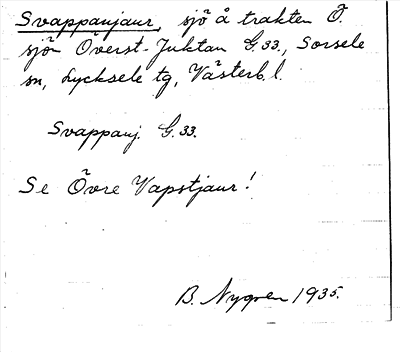 Svappaujaur, sjö å trakten Ö.
sjön Överst-Juktan G.33., Sorsele
sn, Lycksele tg, Västerb.l.
Svappauj. G.33.
Se Övre Vapstjaur!
B. Nygren 1935.